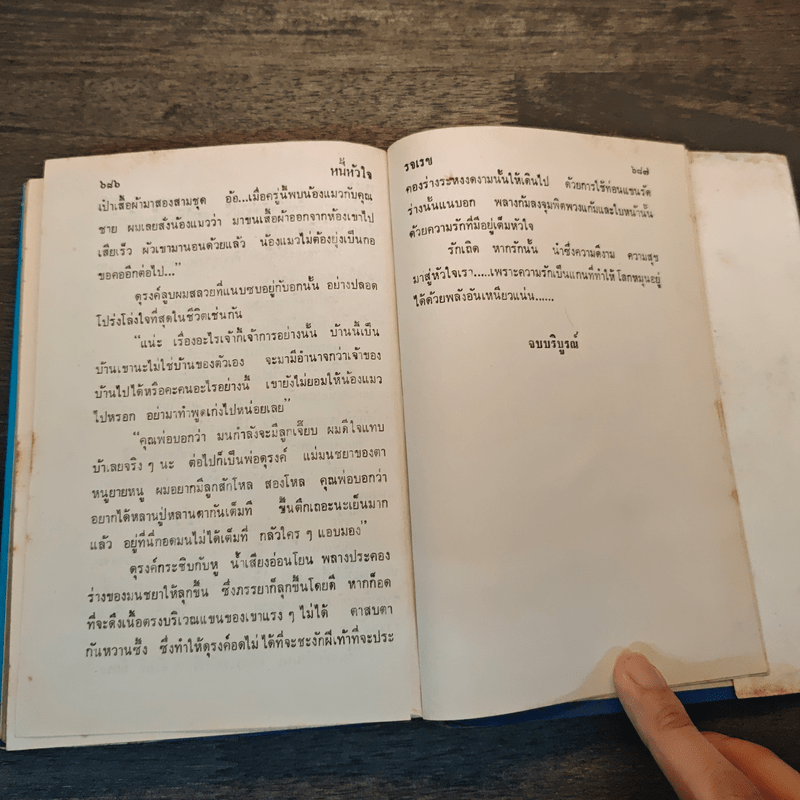 ๖๘๖
หนี้หัวใจ
เป๋าเสื้อผ้ามาสองสามชุด อ้อ...เมื่อครู่นี้พบน้องแมวกับคุณ
ชาย ผมเลยสั่งน้องแมวว่า มาขนเสื้อผ้าออกจากห้องเขาไป
เสียเร็ว ผัวเขามานอนด้วยแล้ว น้องแมวไม่ต้องยุ่งเป็นกอ
ขอคออีกต่อไป..."
ดุรงค์ลูบผมสลวยที่แนบซบอยู่กับอกนั้น อย่างปลอด
โปร่งโล่งใจที่สุดในชีวิตเช่นกัน
"แน่ะ เรื่องอะไรเจ้ากี้เจ้าการอย่างนั้น บ้านนี้เป็น
บ้านเขานะไม่ใช่บ้านของตัวเอง จะมามีอำนาจกว่าเจ้าของ
บ้านไปได้หรือคะคนอะไรอย่างนี้ เขายังไม่ยอมให้น้องแมว
ไปหรอก อย่ามาทำพูดเก่งไปหน่อยเลย"
"คุณพ่อบอกว่า มนกำลังจะมีลูกเจี๊ยบ ผมดีใจแทบ
บ้าเลยจริง ๆ นะ ต่อไปก็เป็นพ่อดุรงค์ แม่มนชยาของตา
หนูยายหนู ผมอยากมีลูกสักโหล สองโหล คุณพ่อบอกว่า
อยากได้หลานปู่หลานตากันเต็มที ขึ้นตึกเถอะนะเย็นมาก
แล้ว อยู่ที่นี่กอดมนไม่ได้เต็มที่ กลัวใคร ๆ แอบมอง"
ดุรงค์กระซิบกับหู น้ำเสียงอ่อนโยน พลางประคอง
ร่างของมนชยาให้ลุกขึ้น ซึ่งภรรยาก็ลุกขึ้นโดยดี หากก็อด
ที่จะดึงเนื้อตรงบริเวณแขนของเขาแรง ๆ ไม่ได้ ตาสบตา
กันหวานซึ้ง ซึ่งทำให้ดุรงค์อดไม่ได้ที่จะชะงักฝีเท้าที่จะประ
รจเรข
๖๘๗
คองร่างระหงงดงามนั้นให้เดินไป ด้วยการใช้ท่อนแขนรัด
ร่างนั้นแนบอก พลางก้มลงจุมพิตพวงแก้มและใบหน้านั้น
ด้วยความรักที่มีอยู่เต็มหัวใจ
รักเถิด หากรักนั้น นำซึ่งความดีงาม ความสุข
มาสู่หัวใจเรา.....เพราะความรักเป็นแกนที่ทำให้โลกหมุนอยู่
ได้ด้วยพลังอันเหนียวแน่น......
จบบริบูรณ์